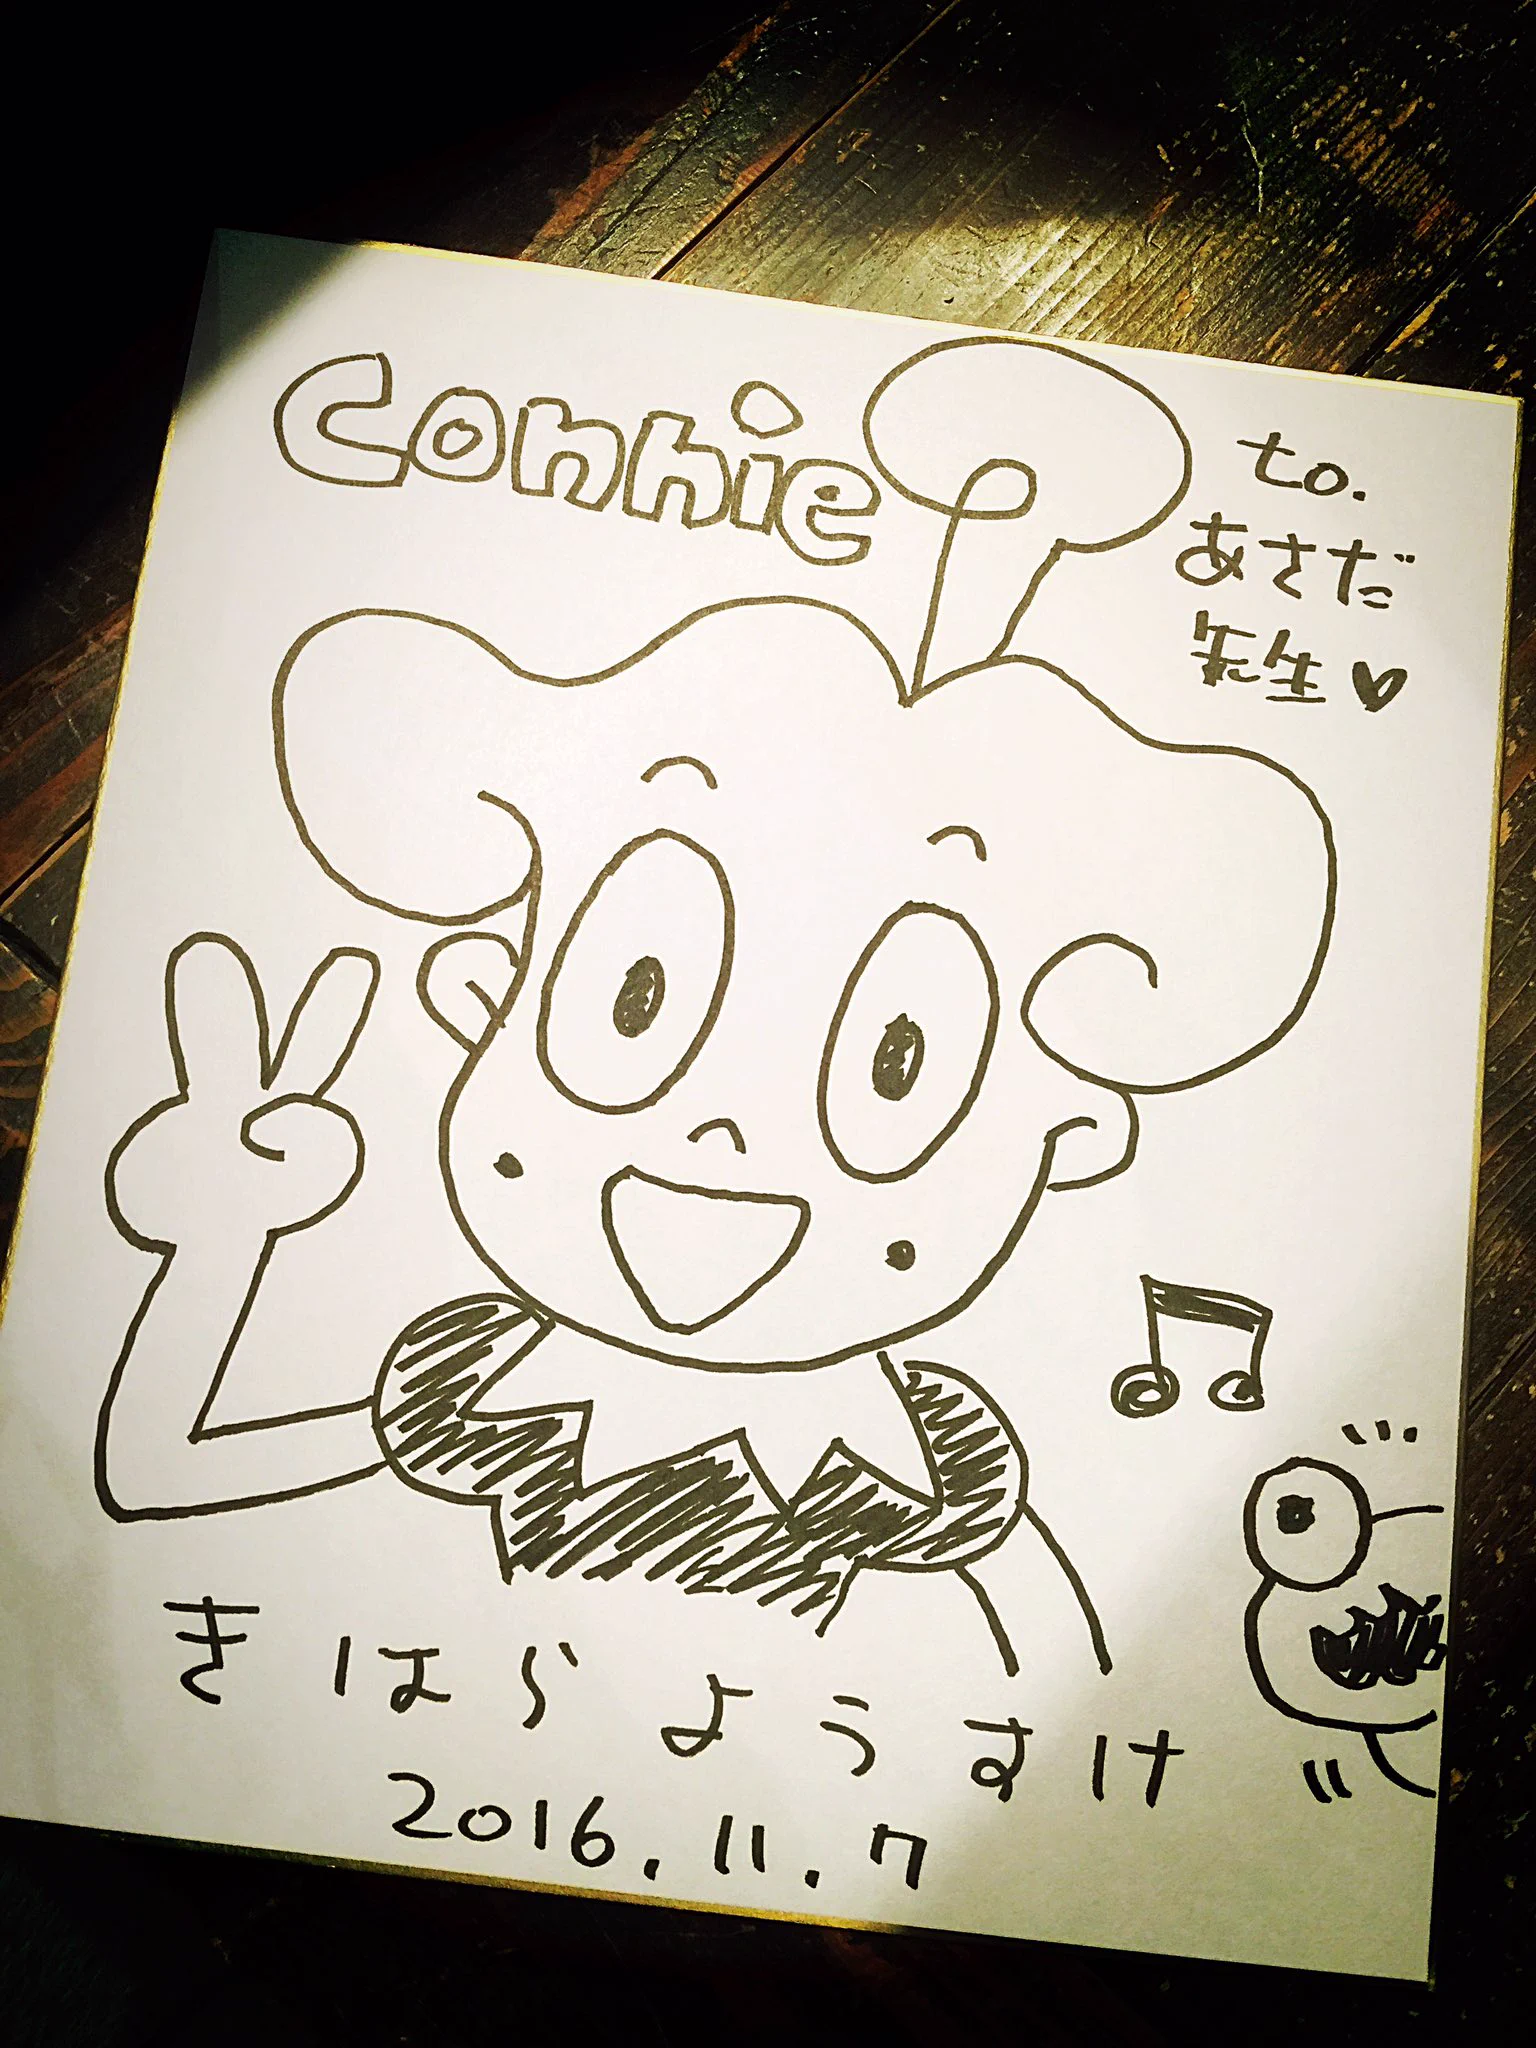 connie
to.
あさだ
先生♥
きはらようすけ
2016.11.7